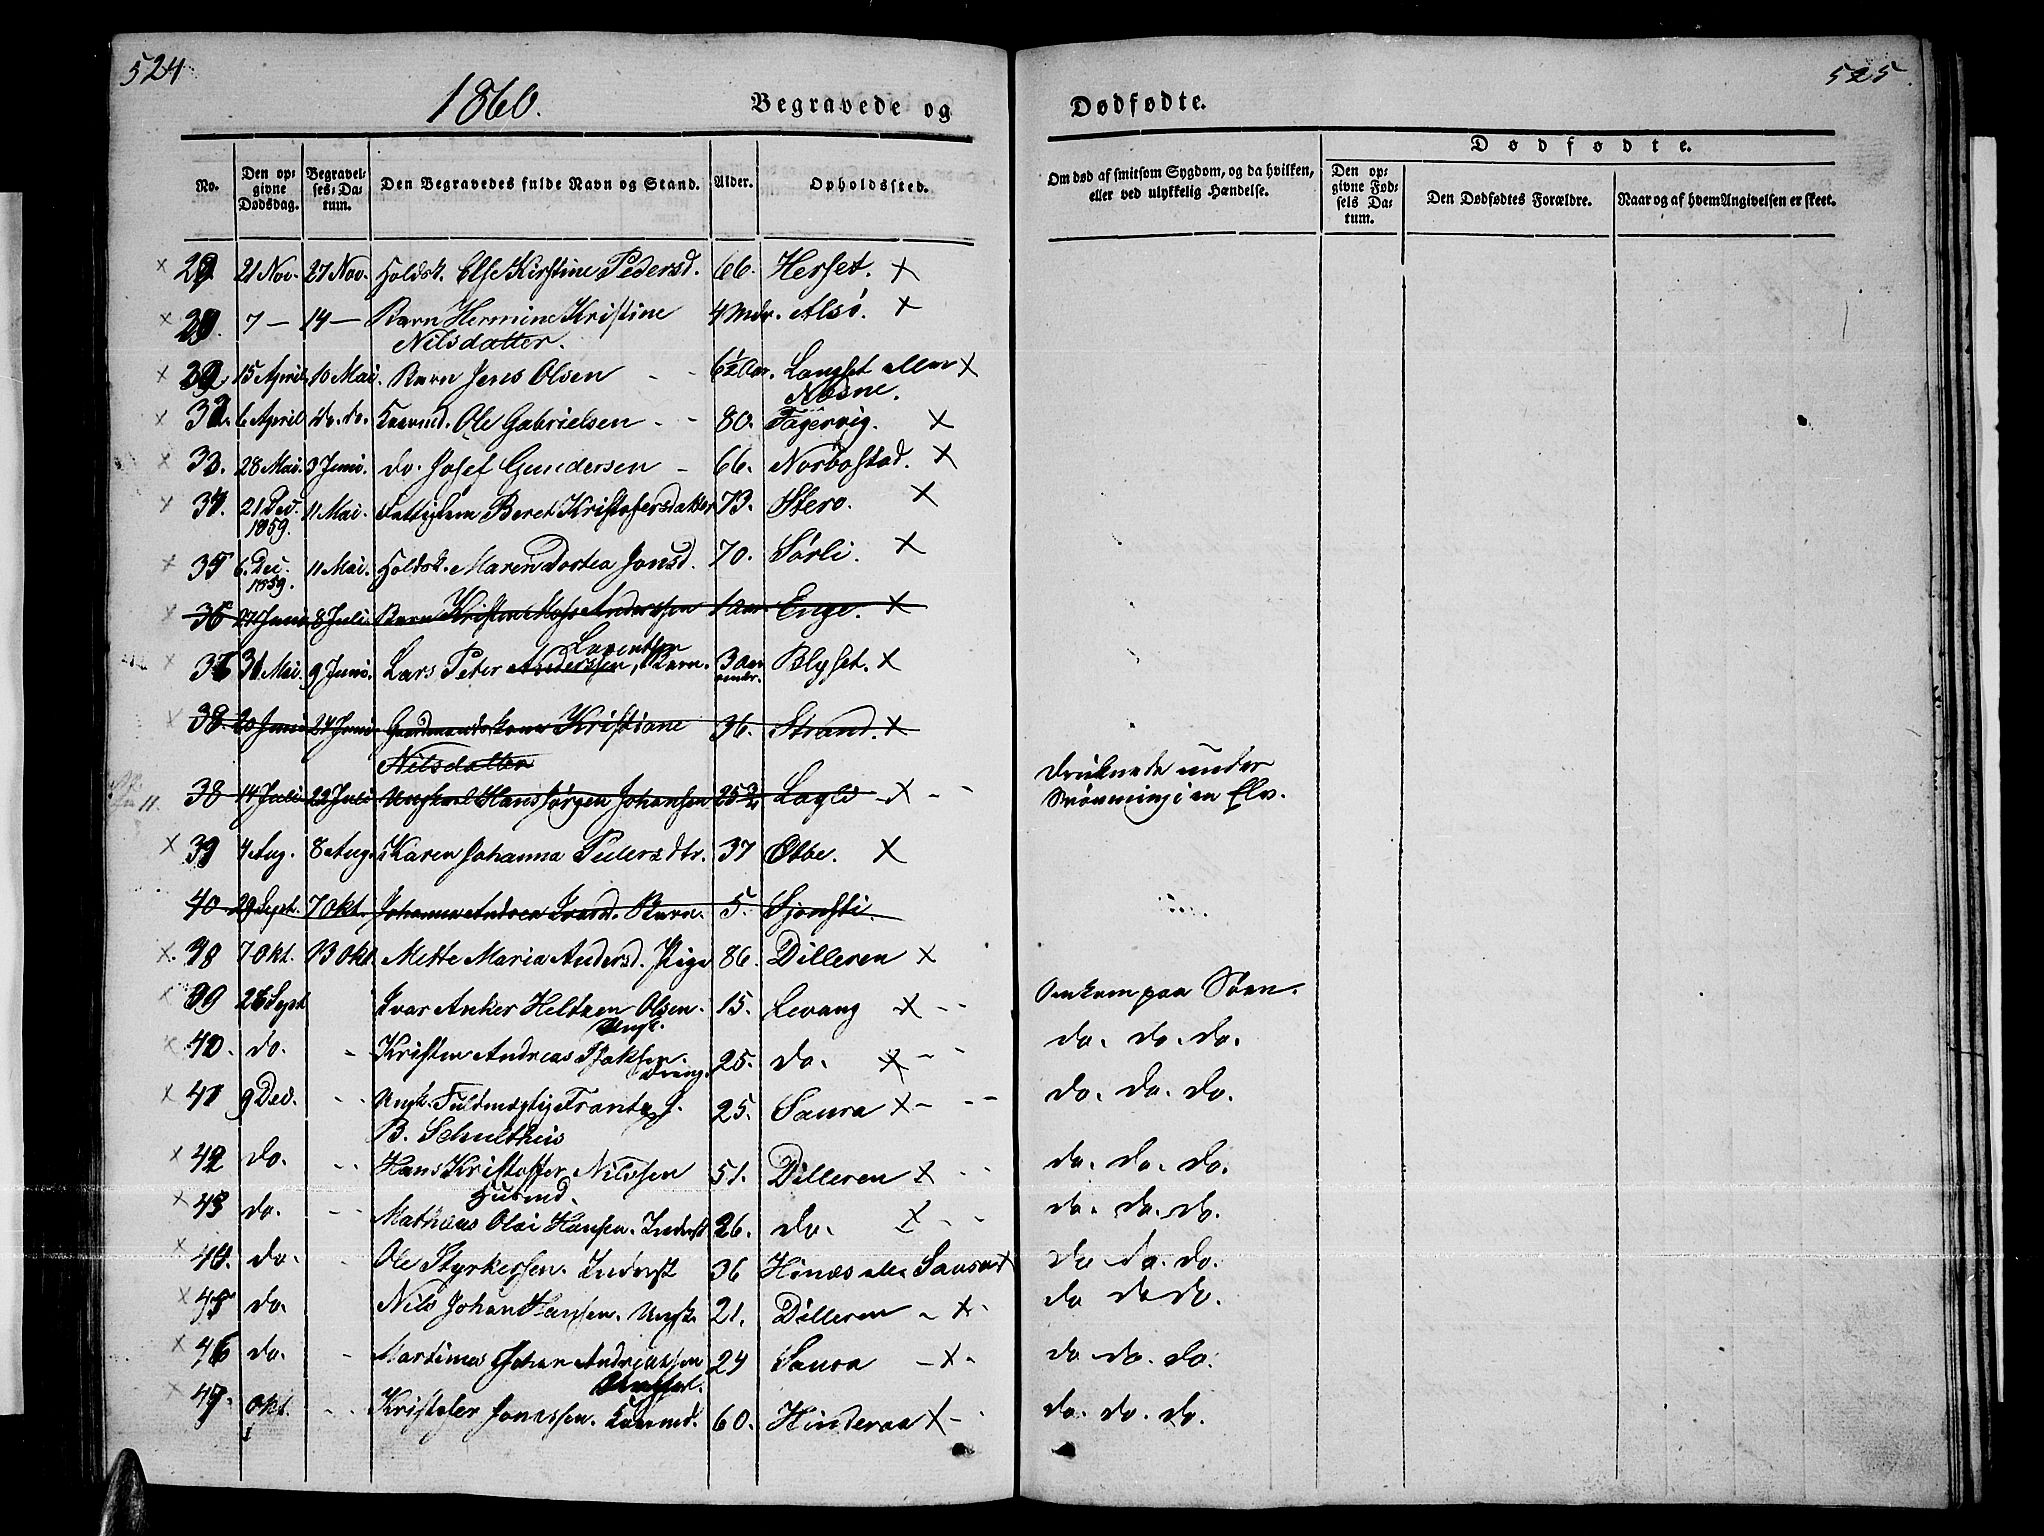 524
1860.
Begravede og
No.
Den opgivne Dødsdag.
Begravelses-Datum.
Den Begravedes fulde Navn og Stand.
Alder.
Opholdssted.
29 21 Nov. 27 Nov. Holdsk. Else Kirstine Pedersd. 66. Herset. X
7 — 14 — Barn Hermine Kristine 4 Mdr. Alsö. X
Nilsdatter.
15 April 10 Mai. Barn Jens Olsen - - 6½ Aar. Langset eller X
Næsne.
32. 6 April do. do. Kaarmd. Ole Gabrielsen - - 80. Fagervig. X
33. 28 Mai. 3 Juni. do. Josef Gundersen - 66. Norbostad. X
34. 21 Dec. 11 Mai. Fattiglem Beret Kristofersdatter 73. Stero. X
1859.
35 6. Dec. 11 Mai. Holdsk. Maren Dortea Jonsd. 70. Sörli. X
1859.
36 27 Juni 8 Juli Barn Kristen Andersen 1 Aar Enge. X
Laventsen
37 31 Mai. 9 Juni. Lars Peter Anderssen, Barn. 3 Aar Blyset. X
38. 20 Juni 24 Juni Kristiane 36. Strand. X
Nilsdatter
38 14 Juli 22 Juli Ungkarl Hans Jørgen Johansen 25 Lagli - X - -
39 4 Aug. 8 Aug. Karen Johanna Pedersdtr. 37 Æbbe. X
40 29 Sept. 7 Okt. Johanna Andrea Ivarsd. Barn. 5. Sjonsti.
38 7 Okt. 13 Okt. Mette Maria Andersd. Pige 86. Dilleren X
39 26 Sept Ivar Anker Heltzen Olsen. 15. Levang X - -
Ungk.
40. do. - Kristen Andreas Isaksen. 25. do. X - -
Dreng.
41 9 Dec. - - Ungk. Fuldmægtig Frantz J. 25. Saura X - - -
B. Schultheis
42 do. - - Hans Kristoffer Nilssen 51. Dilleren X - -
Husmd.
43 do. - - Mathias Olai Hansen. Inderst 26. do. X - -
44. do. - Ole Styrkersen. Inderst 36 Hinnes eller Saura X
45 do. Nils Johan Hansen. Ungk. 21. Dilleren - X -
46 do. - Martinus Johan Andreassen 24 Saura - X -
Ungkarl.
47. Okt. - - Kristofer Jonassen. Kaarmd. 60. Hinderaa X - -
525
Dødfødte.
Om død af smitsom Sygdom, og da hvilken, eller ved ulykkelig Hændelse.
Dødfødte.
Den opgivne Fødsels Datum.
Den Dødfødtes Forældre.
Naar og af hvem Angivelsen er skeet.
Druknede under
Svömming i en Elv.
Omkom paa Söen.
do. do. do.
do. do. do.
do. do. do.
do. do. do.
do do. do.
do do do.
do do. do.
do. do. do.